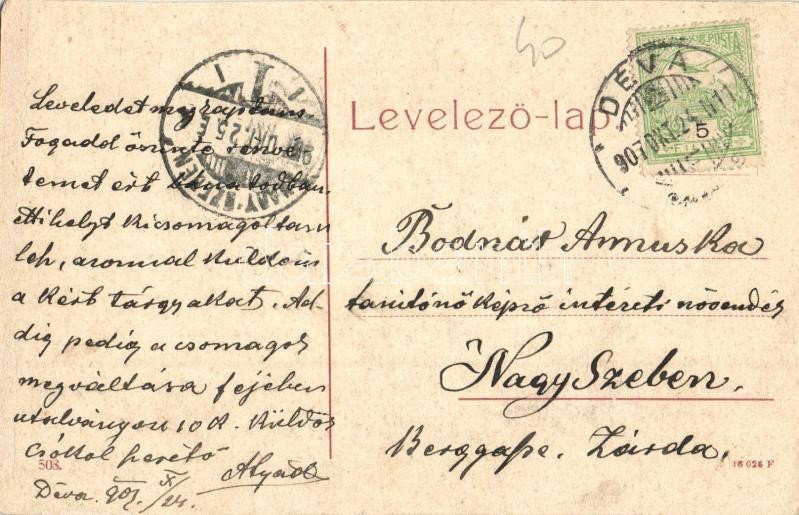 Levelező-lap.
DÉVA
907 OKT. 24
5
NAGY-SZEBEN
Leveledet megkaptam
Fogadd őszinte részvé-
temet ért bánatodban.
Mihelyt kicsomagoltam
leh, azonnal küldöm
a kért tárgyakat. Ad-
dig pedig a csomagok
megváltása fejében
utalványon 10 K. küldök
Csókol szerető
Atyád
Déva 907. X/24.
Bodnár Annuska
tanitónőképző intézeti növendék
Nagy Szeben.
Berggasse. Zárda.
503.
16 026 F
50